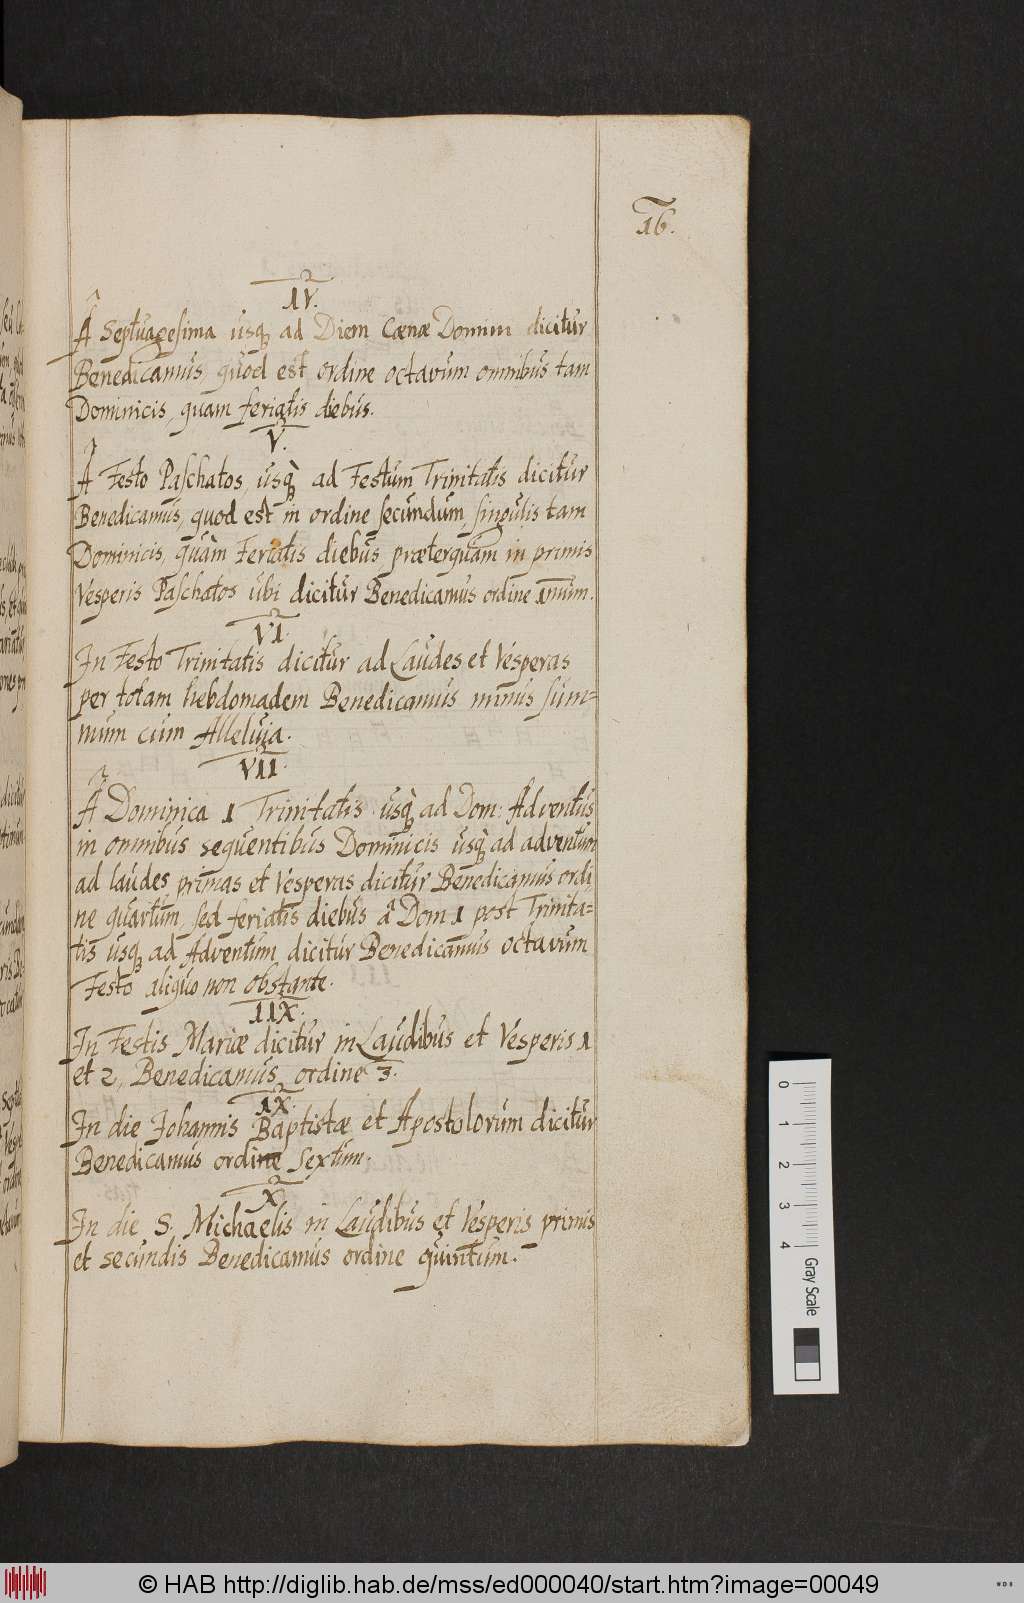 16.
IV.
Â Septuagesima usq₃ ad Diem Cænæ Domini dicitur
Benedicamus, quod est ordine octavum omnibus tam
Dominicis, quam feriatis diebus.
V.
Â Festo Paschatos, usq₃ ad Festum Trinitatis dicitur
Benedicamus, quod est in ordine secundum, singulis tam
Dominicis, quàm Feriatis diebus præterquam in primis
Vesperis Paschatos ubi dicitur Benedicamus ordine 1num.
VI.
In Festo Trinitatis dicitur ad Laudes et Vesperas
per totam hebdomadem Benedicamus minus sum=
mum cum Alleluia.
VII.
Â Dominica 1 Trinitatis usq₃ ad Dom: Adventus
in omnibus sequentibus Dominicis usq₃ ad adventum
ad laudes primas et Vesperas dicitur Benedicamus ordi
ne quartum, sed feriatis diebus â Dom 1 post Trinita=
tis usq₃ ad Adventum dicitur Benedicamus octavum
Festo aliquo non obstante.
IIX.
In Festis Mariæ dicitur in Laudibus et Vesperis 1
et 2, Benedicamus ordine 3.
IX.
In die Johannis Baptistæ et Apostolorum dicitur
Benedicamus ordine Sextum.
X.
In die S. Michaelis in Laudibus et Vesperis primis
et secundis Benedicamus ordine quintum.
0 1 2 3 4 Gray Scale
© HAB http://diglib.hab.de/mss/ed000040/start.htm?image=00049